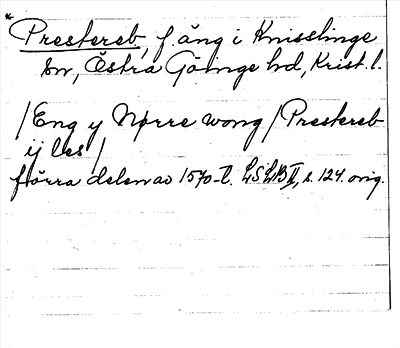 *
Prestereb, f. äng i Knisslinge
sn, Östra Göinge hd, Krist. l.
/Eng y Nørre wong/Prestereb
ij les/
förra delen av 1570-t. LSLB II, s. 124. orig.